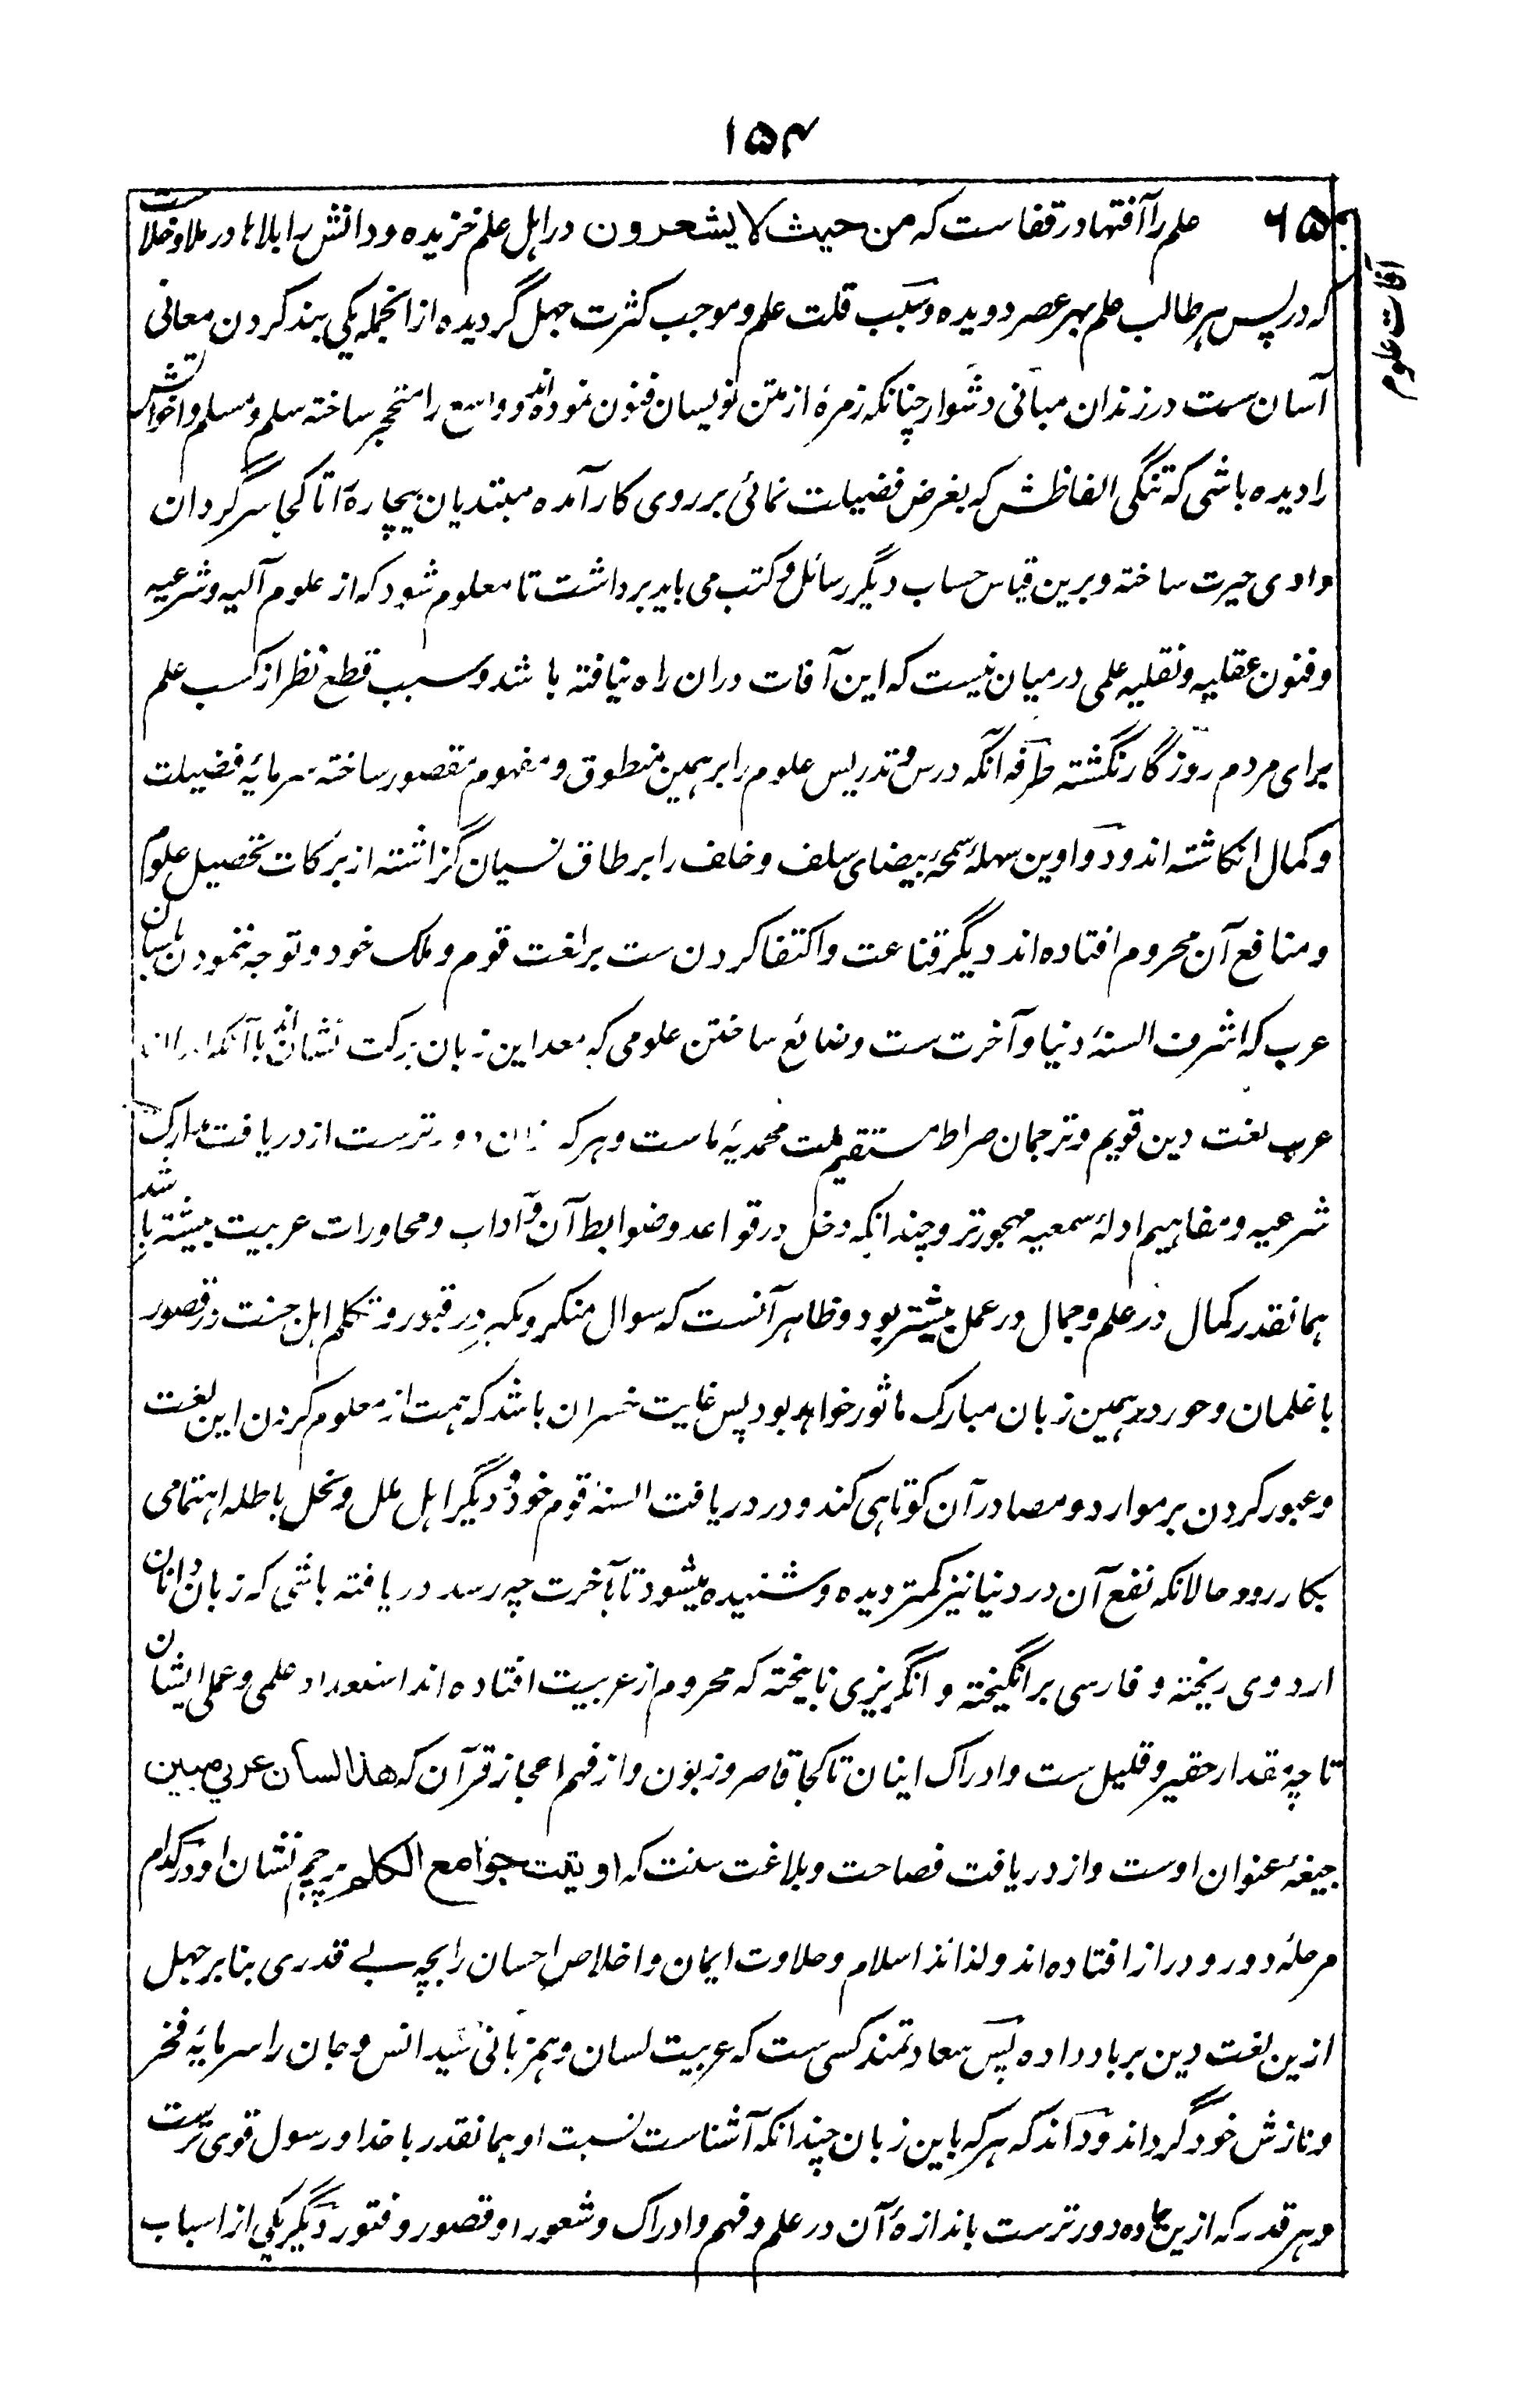 ۱۵۴
آفات علوم
۶۵ علم را آفتها در قفاست که من حیث لا یشعرون در اهل علم خزیده و دانش را بلاها در ملا و خلاست
که در پس هر طالب علم بهر عصر دویده و سبب قلت علم و موجب کثرت جهل گردیده ازانجمله یکی بند کردن معانی
آسان ست در زندان مبانی دشوار چنانکه زمرهٔ از متن نویسان فنون نموده‌اند و واسع را متحجر ساخته سلم و مسلم و اخواتش
را دیده باشی که تنگی الفاظش که بغرض فضیلت نمائی بر روی کار آمده مبتدیان بیچاره را تا کجا سرگردان
وادی حیرت ساخته و برین قیاس حساب دیگر رسائل و کتب می باید برداشت تا معلوم شود که از علوم آلیه و شرعیه
و فنون عقلیه و نقلیه علمی درمیان نیست که این آفات دران راه نیافته باشد و سبب قطع نظر از کسب علم
برای مردم روزگار نگشته طرفه آنکه درس و تدریس علوم را بر همین منطوق و مفهوم مقصور ساخته سرمایهٔ فضیلت
و کمال انگاشته اند و دواوین سهلهٔ سمحهٔ بیضای سلف و خلف را بر طاق نسیان گزاشته از برکات تحصیل علوم
و منافع آن محروم افتاده اند دیگر قناعت و اکتفا کردن ست بر لغت قوم و ملک خود و توجه ننمودن بلسان
عرب که اشرف السنهٔ دنیا و آخرت ست و ضائع ساختن علومی که معداین زبان برکت نشان اند با آنکه
عرب لغت دین قویم و ترجمان صراط مستقیم ملت محمدیهٔ ماست و هر که دورترست از دریافت مدارک
شرعیه و مفاهیم ادلهٔ سمعیه مهجورتر و چندانکه دخل در قواعد و ضوابط آن و آداب و محاورات عربیت بیشتر باشد
همانقدر کمال در علم و جمال در عمل بیشتر بود و ظاهر آنست که سوال منکر و نکیر در قبور و تکلم اهل جنت در قصور
با غلمان و حور بهمین زبان مبارک ماثور خواهد بود پس غایت خسران باشد که همت از معلوم کردن این لغت
و عبور کردن بر موارد و مصادر آن کوتاهی کند و در دریافت السنهٔ قوم خود و دیگر اهل ملل و نحل باطله اهتمامی
بکار رود حالانکه نفع آن در دنیا نیز کمتر دیده و شنیده میشود تا بآخرت چه رسد دریافته باشی که زبان دانان
اردوی ریخته و فارسی برانگیخته و انگریزی نابیخته که محروم از عربیت افتاده اند استعداد علمی و عملی ایشان
تا چه مقدار حقیر و قلیل ست و ادراک اینان تا کجا قاصر و زبون و از فهم اعجاز قرآن که هذا لسان عربی مبین
جیغهٔ عنوان اوست و از دریافت فصاحت و بلاغت سنت که اوتیت جوامع الکلم پرچم نشان او در کدام
مرحلهٔ دور و دراز افتاده اند و لذائذ اسلام و حلاوت ایمان و اخلاص احسان را بچه بے قدری بنابر جهل
ازین لغت دین برباد داده پس سعادتمند کسی ست که عربیت لسان و همزبانی سید انس و جان را سرمایهٔ فخر
و نازش خود گرداند و داند که هر که باین زبان چندانکه آشناست نسبت او همانقدر با خدا و رسول قوی ترست
و هر قدر که ازین جاده دورترست باندازهٔ آن در علم و فهم و ادراک و شعور او قصور و فتور دیگر یکی از اسباب